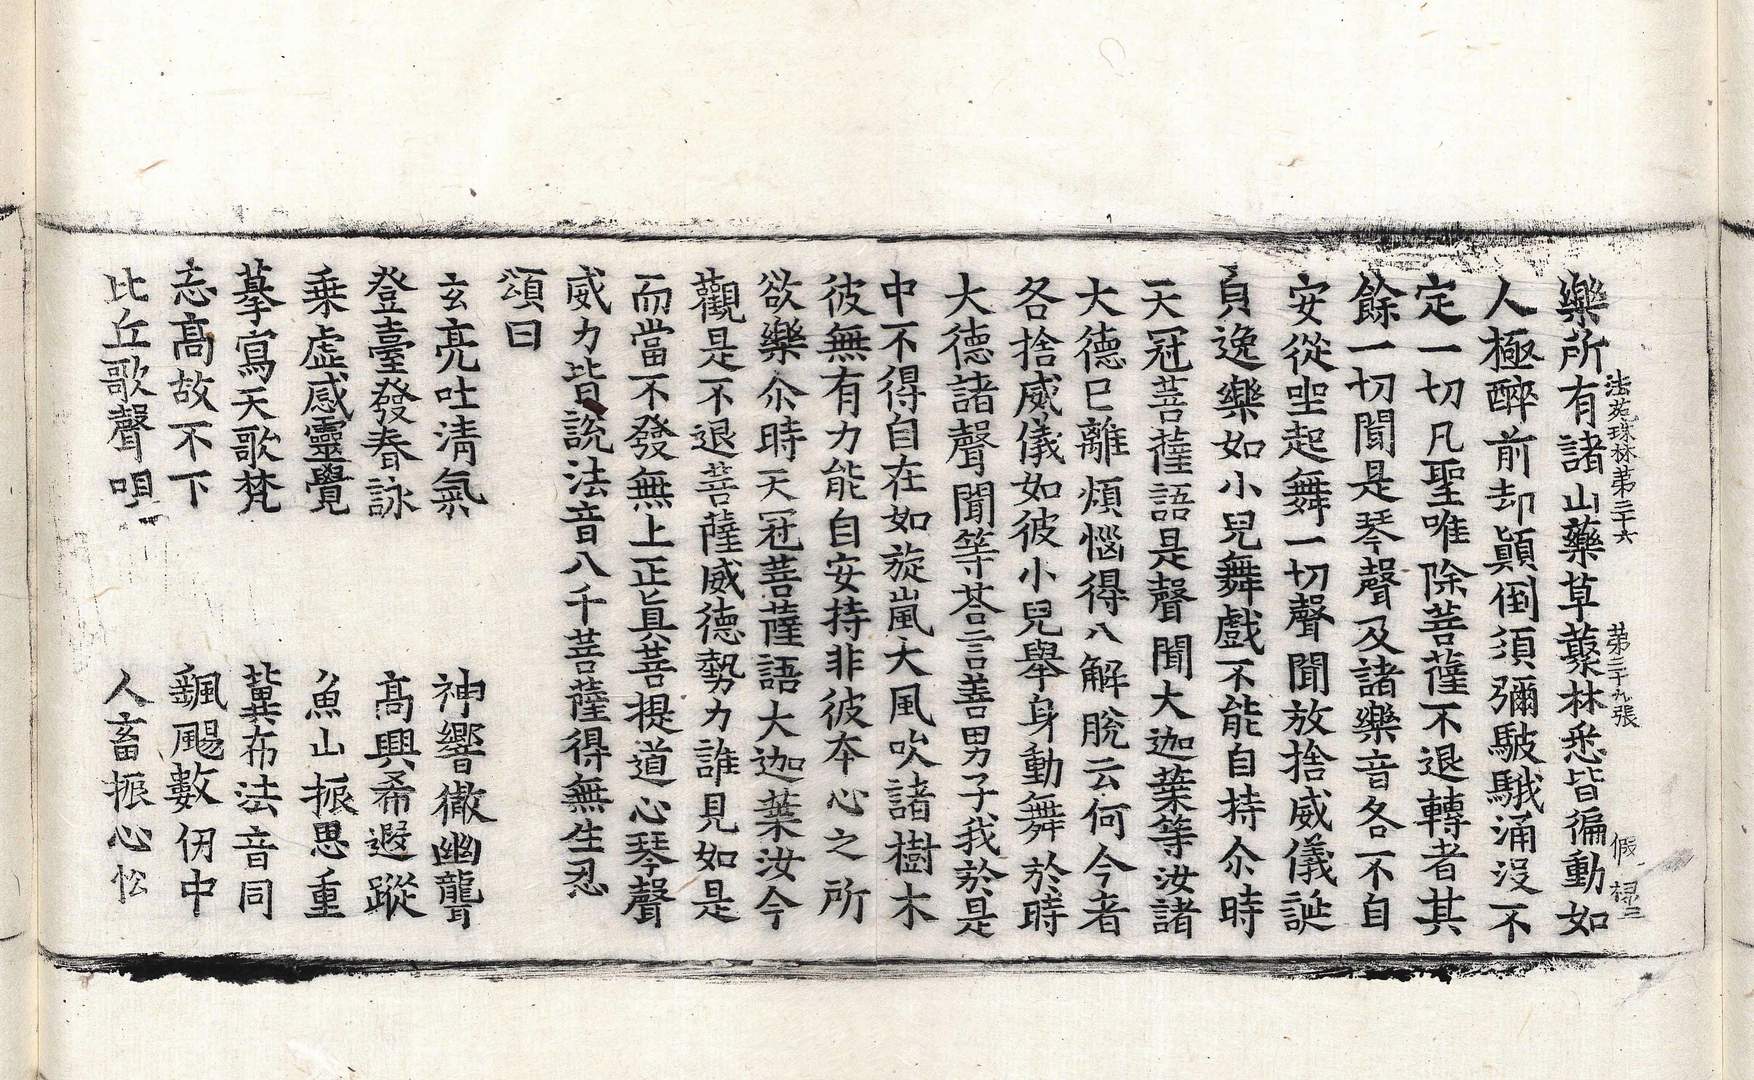 樂所有諸山藥草藂林悉皆徧動如
法苑珠林第三十六　第三十九張　假　禄三
人極醉前却顚倒須彌駊騀涌没不
定一切凡聖唯除菩薩不退轉者其
餘一切聞是琴聲及諸樂音各不自
安從坐起舞一切聲聞放捨威儀誕
皃逸樂如小兒舞戲不能自持尒時
天冠菩薩語是聲聞大迦葉等汝諸
大德已離煩惱得八解脫云何今者
各捨威儀如彼小兒舉身動舞於時
大德諸聲聞等荅言善男子我於是
中不得自在如旋嵐大風吹諸樹木
彼無有力能自安持非彼夲心之所
欲樂尒時天冠菩薩語大迦葉汝今
觀是不退菩薩威德勢力誰見如是
而當不發無上正眞菩提道心琴聲
威力皆説法音八千菩薩得無生忍
頌曰
玄亮吐淸氣　神響徹幽聾
登臺發春詠　高興希遐蹤
乗虛感靈覺　魚山振思重
摹寫天歌梵　冀布法音同
忘高故不下　飄颺數仞中
比丘歌聲唄　人畜振心忪